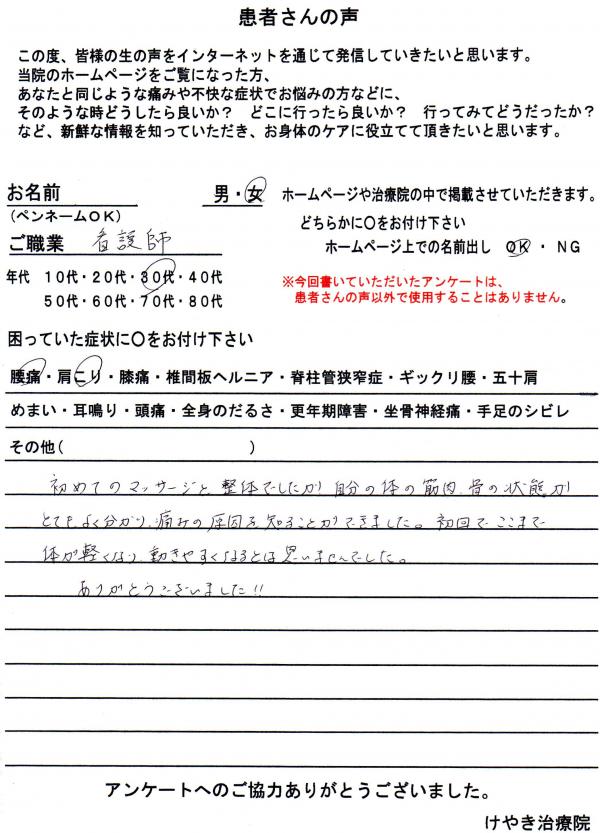 患者さんの声
この度、皆様の生の声をインターネットを通じて発信していきたいと思います。
当院のホームページをご覧になった方、
あなたと同じような痛みや不快な症状でお悩みの方などに、
そのような時どうしたら良いか？ どこに行ったら良いか？ 行ってみてどうだったか？
など、新鮮な情報を知っていただき、お身体のケアに役立てて頂きたいと思います。
お名前 男・女
(ペンネームＯＫ)
ご職業 看護師
年代 １０代・２０代・３０代・４０代
５０代・６０代・７０代・８０代
ホームページや治療院の中で掲載させていただきます。
どちらかに〇をお付け下さい
ホームページ上での名前出し ＯＫ ・ ＮＧ
※今回書いていただいたアンケートは、
患者さんの声以外で使用することはありません。
困っていた症状に〇をお付け下さい
腰痛・肩こり・膝痛・椎間板ヘルニア・脊柱管狭窄症・ギックリ腰・五十肩
めまい・耳鳴り・頭痛・全身のだるさ・更年期障害・坐骨神経痛・手足のシビレ
その他( )
初めてのマッサージと整体でしたが 自分の体の筋肉、骨の状態が
とてもよく分かり、痛みの原因を知ることができました。初回でここまで
体が軽くなり動きやすくなるとは思いませんでした。
ありがとうございました!!
アンケートへのご協力ありがとうございました。
けやき治療院